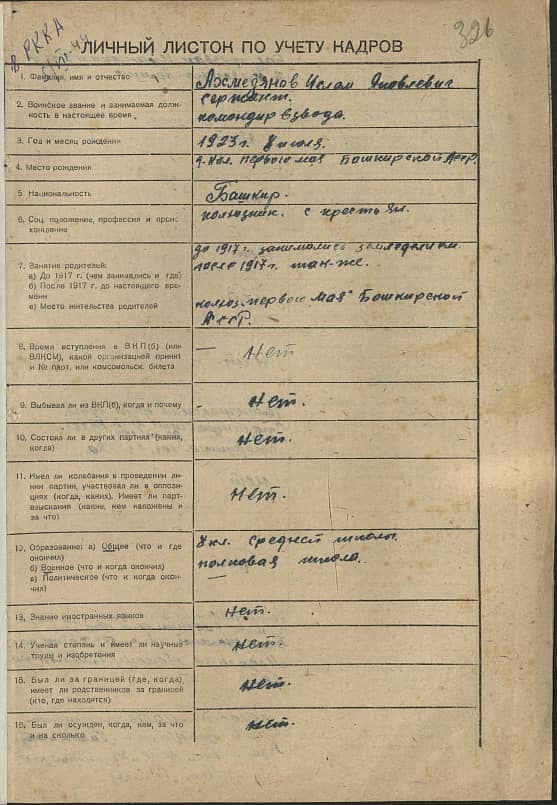 326
в РККА
ЛИЧНЫЙ ЛИСТОК ПО УЧЕТУ КАДРОВ
1. Фамилия, имя и отчество
Ислам Яковлевич
2. Воинское звание и занимаемая долж-
ность в настоящее время
сержант.
командир взвода.
3. Год и месяц рождения
1923 г. июля.
4. Место рождения
первое мая Башкирской АССР.
5 Национальность
Башкир.
6. Соц. положение, профессия и проис-
хождение
колхозник. с крестьян.
7. Занятие родителей:
а) До 1917 г. (чем занимались и где)
б) После 1917 г. до настоящего вре-
мени
в) Место жительства родителей
до 1917 г. занимались земледелием.
после 1917 г. так-же.
колхоз первое мая" Башкирской
АССР.
8. Время вступления в ВКП(б) (или
ВЛКСМ), какой организацией принят
и № парт. или комсомольск. билета
— Нет
9. Выбывал ли из ВКП(б), когда и почему
- Нет.
10. Состоял ли в других партиях (каких,
когда)
Нет.
11. Имел ли колебания в проведении ли-
нии партии, участвовал ли в оппози-
циях (когда, каких). Имеет ли парт-
взыскания (какие, кем наложены и
за что)
Нет.
12. Образование: а) Общее (что и где
окончил)
б) Военное (что и когда окончил)
в) Политическое (что и когда окон-
чил)
кл. средней школы.
полковая школа.
—
13. Знание иностранных языков
Нет.
14. Ученая степень и имеет ли научные
труды и изобретения
Нет.
15. Был ли за границей (где, когда),
имеет ли родственников за границей
(кто, где находится)
Нет.
16. Был ли осужден, когда, кем, за что
и на сколько
Нет.